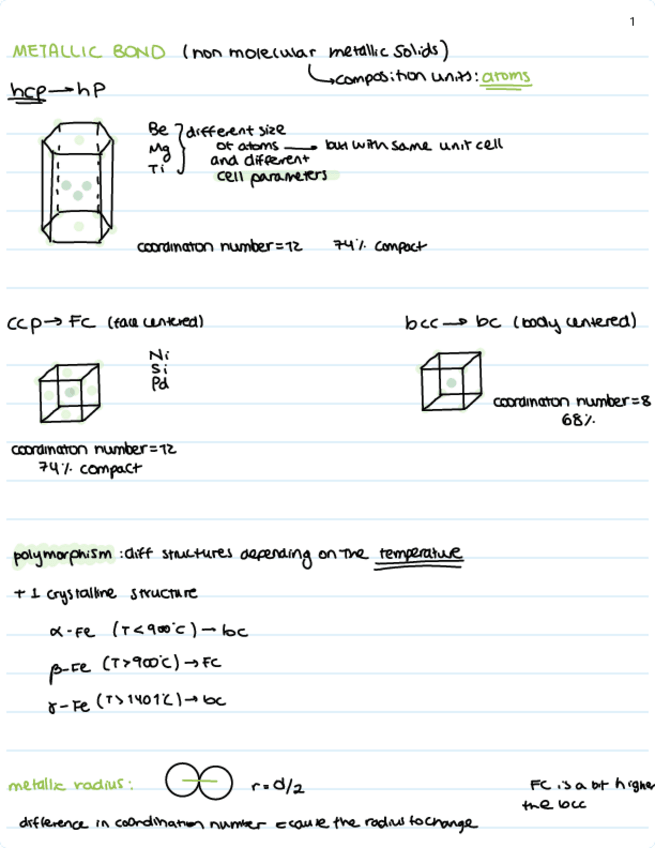 1
METALLIC BOND (non molecular metallic solids)
composition units: atoms
hcp→hP
Be
Mg
Ti
different size
of atoms → but with same unit cell
and different
cell parameters
coordinaton number=12 74% compact
ccp→ FC (face centered)
Ni
Si
Pd
coordinaton number=12
74% compact
bcc → bc (body centered)
coordinaton number=8
68%
polymorphism: diff structures depending on the temperature
+1 crystalline structure
α-Fe (T<900°C)→bc
β-Fe (T>900°C)→FC
γ-Fe (T>1401°C)→bc
metallic radius: r=d/2
FC is a bit higher
the bcc
difference in coordination number cause the radius to change